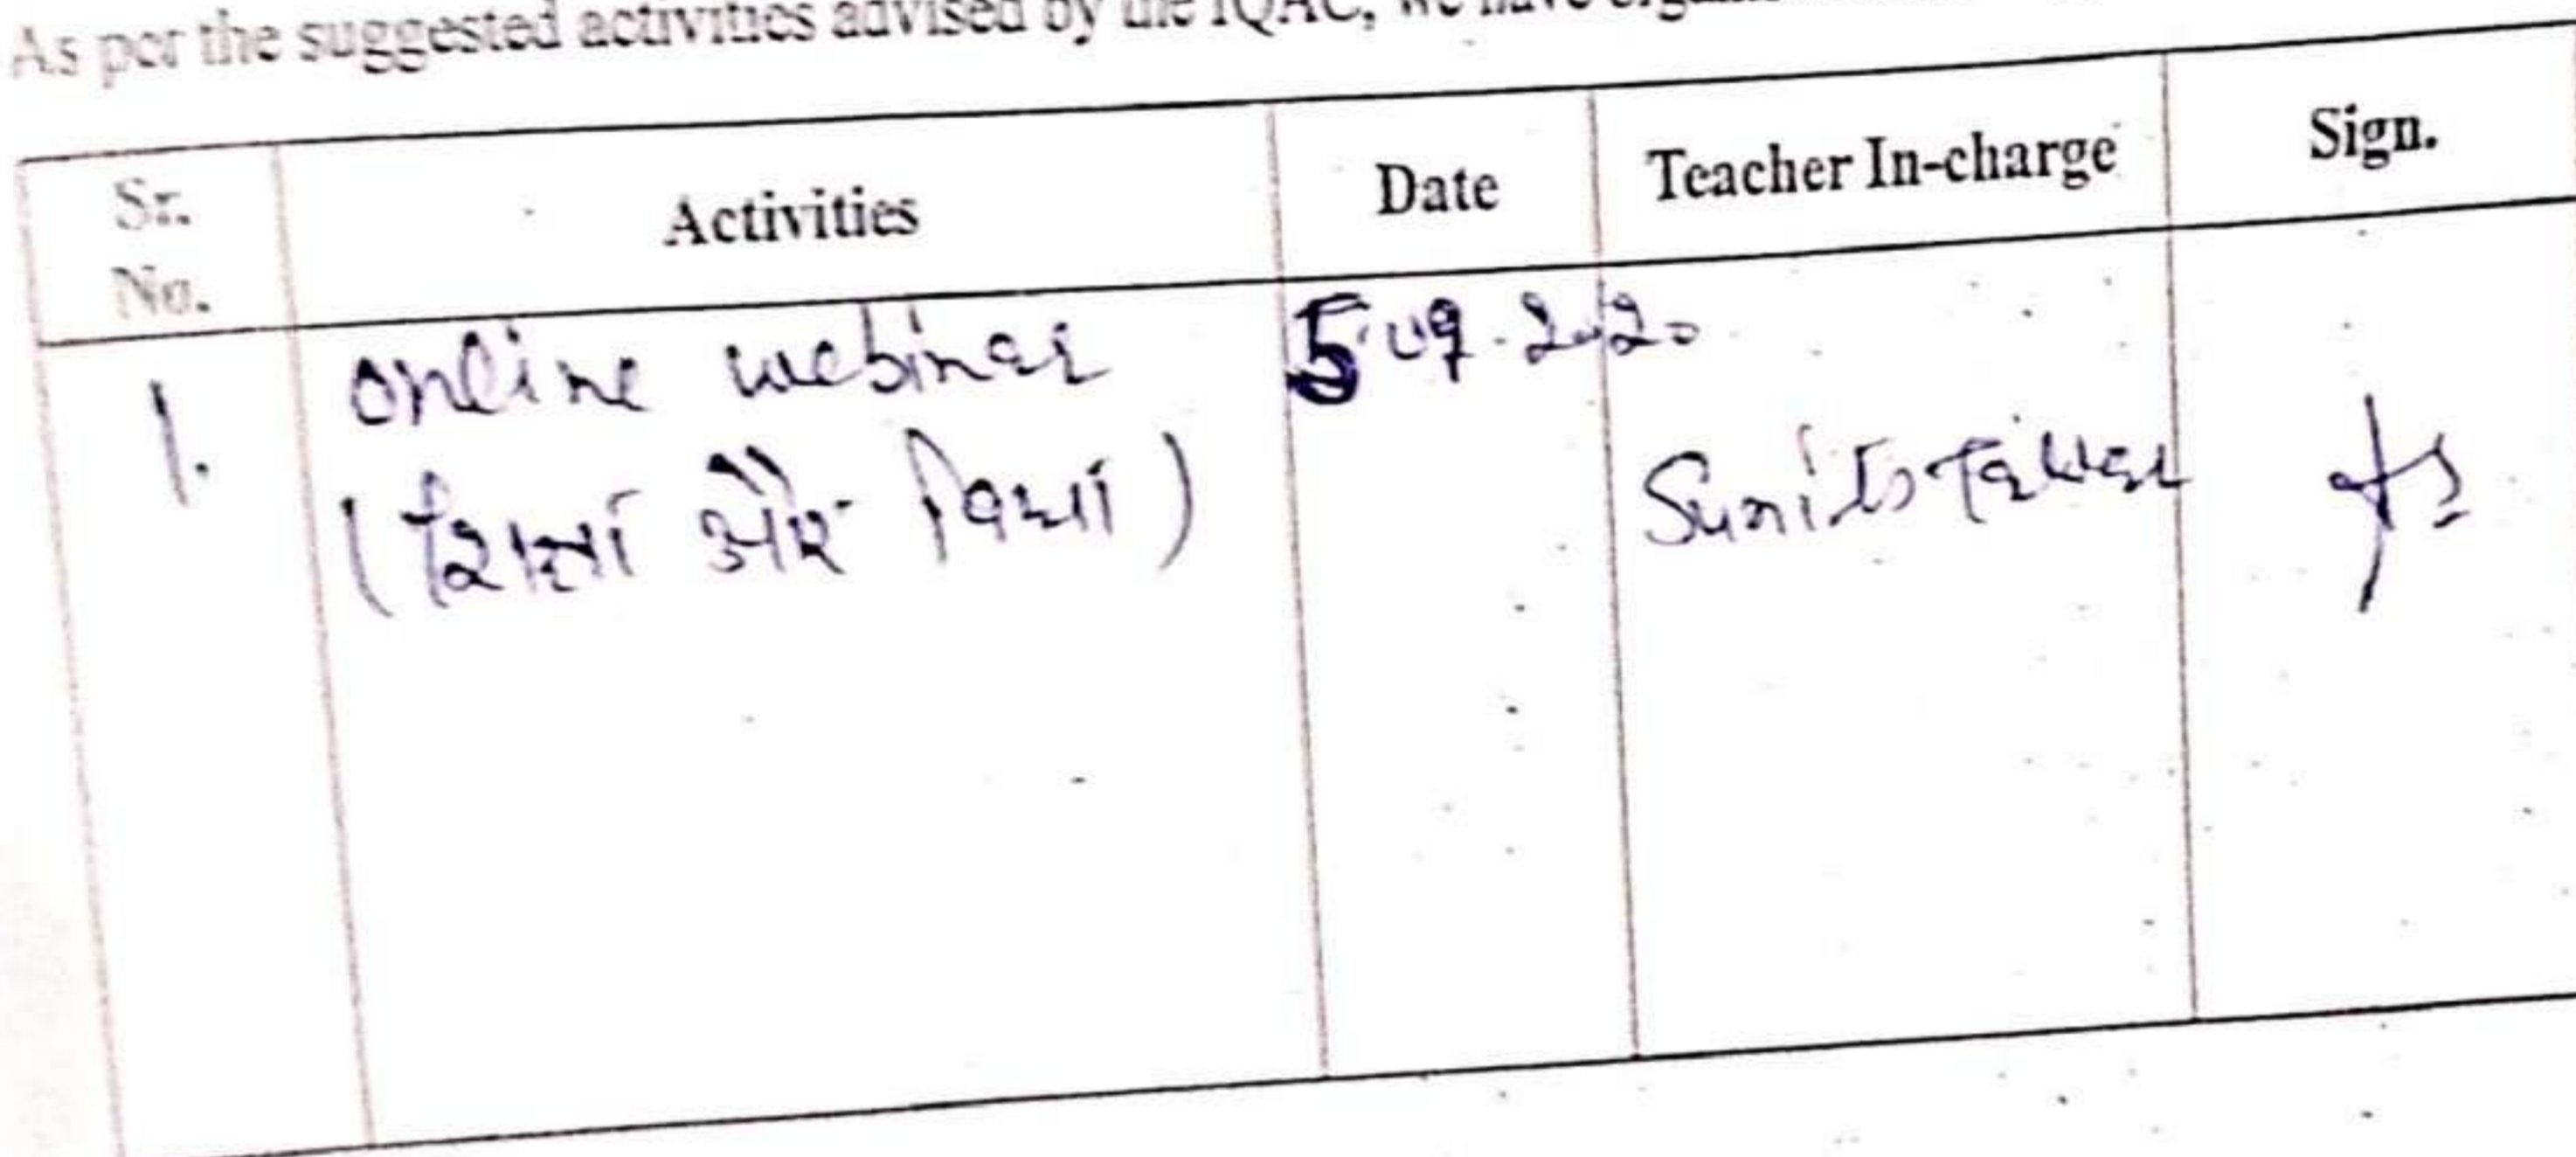 As per the suggested activities advised by the IQAC, we have
Sr. No. Activities Date Teacher In-charge Sign.
1. online webinar 5.09.2020
(शिक्षा और विद्या) Sunita